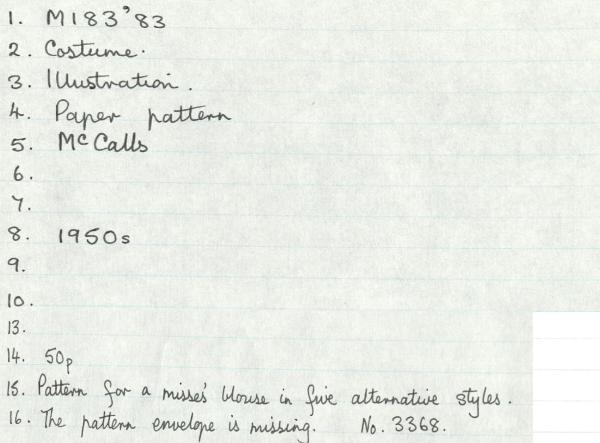 1. M183'83
2. Costume.
3. Illustration.
4. Paper pattern
5. McCalls
6.
7.
8. 1950s
9.
10.
13.
14. 50p
15. Pattern for a misses' blouse in five alternative styles.
16. The pattern envelope is missing. No. 3368.